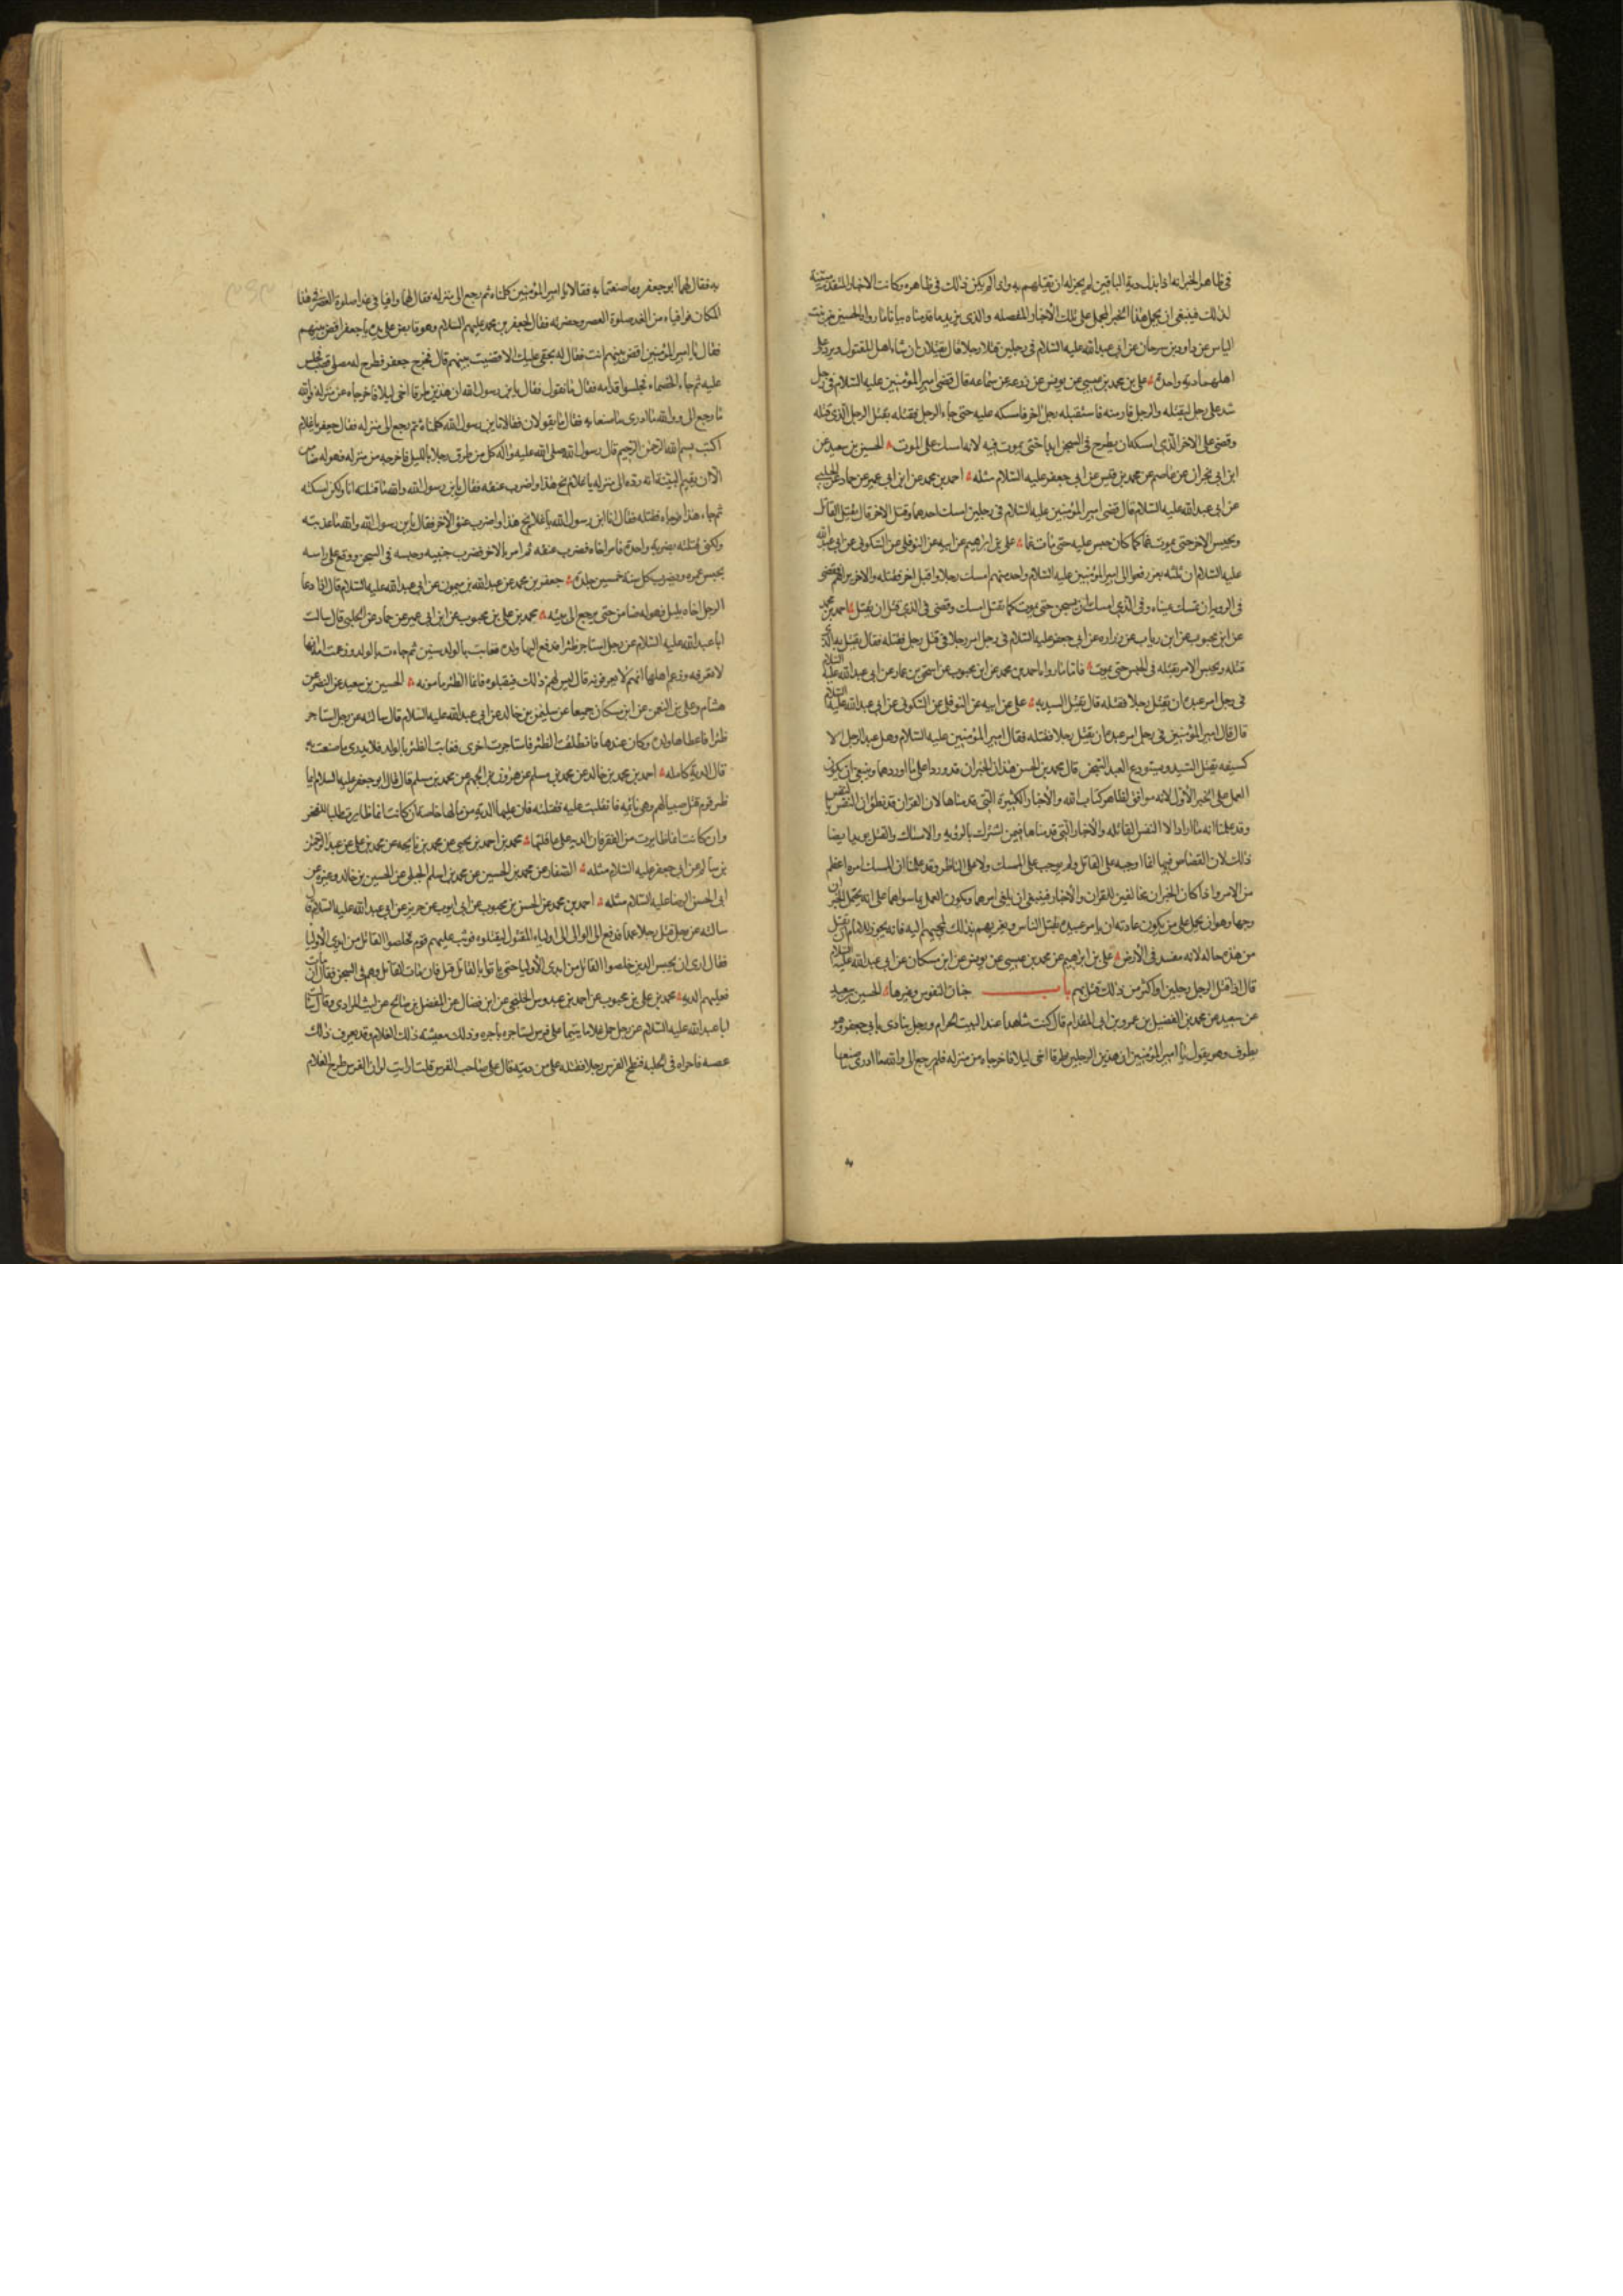 في ظاهر الخبر انه اذا بذل دية الباقين لم يجز له ان يقتلهم به واذا لم يكن ذلك في ظاهره وكانت الاخبار المتقدمة مبينة
لذلك فينبغي ان يحمل هذا الخبر المجمل على تلك الاخبار المفصله والذي يزيد ما قدمناه بيانا ما رواه الحسين بن بنت
الياس عن داود بن سرحان عن ابي عبد الله عليه السلام في رجلين قتلا رجلا قال يقتلان ان شاء اهل المقتول ويرد على
اهلهما دية واحدة علي بن محمد بن عيسى عن يونس عن زرعه عن سماعه قال قضى امير المؤمنين عليه السلام في رجل
شد على رجل ليقتله والرجل فار منه فاستقبله رجل اخر فامسكه عليه حتى جاء الرجل فقتله بقتل الرجل الذي قتله
وقضى على الاخر الذي امسكه ان يطرح في السجن ابدا حتى يموت فيه لانه امسك على الموت الحسين بن سعيد عن
ابن ابي نجران عن عاصم عن محمد بن قيس عن ابي جعفر عليه السلام مثله احمد بن محمد عن ابن ابي عمير عن حماد عن الحلبي
عن ابي عبد الله عليه السلام قال قضى امير المؤمنين عليه السلام في رجلين امسك احدهما وقتل الاخر قال يقتل القاتل
ويحبس الاخر حتى يموت غما كما كان حبس عليه حتى مات غما علي بن ابراهيم عن ابيه عن النوفلي عن السكوني عن ابي عبد الله
عليه السلام ان ثلثه نفر رفعوا الى امير المؤمنين عليه السلام واحد منهم امسك رجلا واقبل اخر فقتله والاخر يراهم فقضى
في الرويه ان تسمل عيناه وفي الذي امسك ان يسجن حتى يموت كما امسك وقضى في الذي قتل ان يقتل احمد بن محمد
عن ابن محبوب عن ابن رياب عن زراره عن ابي جعفر عليه السلام في رجل امر رجلا في قتل رجل فقتله فقال يقتل به الذي
قتله ويحبس الامر بقتله في الحبس حتى يموت فاما ما رواه احمد بن محمد عن ابن محبوب عن اسحق بن عمار عن ابي عبد الله عليه السلام
في رجل امر عبده ان يقتل رجلا فقتله قال يقتل السيد به علي عن ابيه عن النوفلي عن السكوني عن ابي عبد الله عليه السلام
قال قال امير المؤمنين في رجل امر عبده ان يقتل رجلا فقتله فقال امير المؤمنين عليه السلام وهل عبد الرجل الا
كسيفه يقتل السيد ويستودع العبد السجن قال محمد بن الحسن هذان الخبران قد وردا على ما اوردهما وينبغي ان يكون
العمل على الخبر الاول لانه موافق لظاهر كتاب الله والاخبار الكثيرة التي قدمناها لان القران قد نطق ان النفس بالنفس
وقد علمنا انه ما اراد الا النفس القاتله والاخبار التي قدمناها فيمن اشترك بالرؤيه والامساك والقتل يويد ايضا
ذلك لان القصاص فيها انما اوجبه على القاتل ولم يوجب على الممسك ولا على الناظر وقد علمنا ان الممسك امره اعظم
من الامر واذا كان الخبران مخالفين للقران والاخبار فينبغي ان يلغى امرهما ويكون العمل بما سواهما على انه يحتمل الخبران
وجها وهو ان يحمل على من يكون عادته ان يامر عبيده بقتل الناس ويغريهم بذلك ويجيهم اليه فانه يجوز للامام ان يقتل
من هذه حاله لانه مفسد في الارض علي بن ابراهيم عن محمد بن عيسى عن يونس عن ابن مسكان عن ابي عبد الله عليه السلام
قال اذا قتل الرجل رجلين او اكثر من ذلك قتل بهم باب ضمان النفوس وغيرها الحسين بن سعيد
عن سعيد عن محمد بن الفضيل عن عمرو بن ابي المقدام قال كنت شاهدا عند البيت الحرام ورجل ينادي بابي جعفر وهو
يطوف وهو يقول يا امير المؤمنين ان هذين الرجلين طرقا اخي ليلا فاخرجاه من منزله فلم يرجع الي والله ما ادري ما صنعا
به فقال لهما ابو جعفر وما صنعتما به فقالا يا امير المؤمنين كلمناه ثم رجع الى منزله فقال لهما وافيا في غدا صلوة العصر في هذا
المكان فوافياه من الغد صلوة العصر وحضرته فقال لجعفر بن محمد عليهم السلام وهو قابض على يده يا جعفر اقض بينهم
فقال يا امير المؤمنين اقض بينهم انت فقال له بحقي عليك الا قضيت بينهم قال فخرج جعفر فطرح له مصلى قصب فجلس
عليه ثم جاء الخصماء فجلسوا قدامه فقال ما تقول فقال يا بن رسول الله ان هذين طرقا اخي ليلا فاخرجاه من منزله فوالله
ما رجع الي ووالله ما ادري ما صنعا به فقال ما تقولان فقالا يا بن رسول الله كلمناه ثم رجع الى منزله فقال جعفر يا غلام
اكتب بسم الله الرحمن الرحيم قال رسول الله صلى الله عليه واله كل من طرق رجلا بالليل فاخرجه من منزله فهو له ضامن
الا ان يقيم البينة انه رده الى منزله يا غلام نح هذا واضرب عنقه فقال يا بن رسول الله والله ما قتلته انا ولكن امسكته
ثم جاء هذا فوجاه فقتله فقال انا ابن رسول الله يا غلام نح هذا واضرب عنق الاخر فقال يا بن رسول الله والله ما عذبته
ولكني قتلته بضربة واحدة فامر اخاه فضرب عنقه ثم امر بالاخر فضرب جنبيه وحبسه في السجن ووقع على راسه
يحبس عمره ويضرب كل سنة خمسين جلدة جعفر بن محمد عن عبد الله بن ميمون عن ابي عبد الله عليه السلام قال اذا دعا
الرجل اخاه بليل فهو له ضامن حتى يرجع الى بيته محمد بن علي بن محبوب عن ابن ابي عمير عن حماد عن الحلبي قال سالت
ابا عبد الله عليه السلام عن رجل استاجر ظئرا فدفع اليها ولده فغابت بالولد سنين ثم جاءت بالولد وزعمت امه انها
لا تعرفه وزعم اهلها انهم لا يعرفونه قال ليس لهم ذلك فيقبلوه فانما الظئر مامونه الحسين بن سعيد عن النضر عن
هشام وعلي بن النعمن عن ابن مسكان جميعا عن سليمن بن خالد عن ابي عبد الله عليه السلام قال سالته عن رجل استاجر
ظئرا فاعطاها ولده وكان عندها فانطلقت الظئر فاستاجرت اخرى فغابت الظئر بالولد فلا يدري ما صنعت به
قال الدية كامله احمد بن محمد بن خالد عن محمد بن مسلم عن هرون بن الجهم عن محمد بن مسلم قال قال ابو جعفر عليه السلام ايما
ظئر قوم قتل صبيا لهم وهي نائمه فانقلبت عليه فقتلته فان عليها الدية من مالها خاصة ان كانت انما ظايرت طلبا للفخر
وان كانت انما ظايرت من الفقر فان الدية على عاقلتها محمد بن احمد بن يحيى عن محمد بن ناجيه عن محمد بن علي عن عبد الرحمن
بن سالم عن ابي جعفر عليه السلام مثله الصفار عن محمد بن الحسين عن محمد بن اسلم الجبلي عن الحسين بن خالد وغيره عن
ابي الحسن الرضا عليه السلام مثله احمد بن محمد عن الحسن بن محبوب عن ابي ايوب عن حريز عن ابي عبد الله عليه السلام قال
سالته عن رجل قتل رجلا عمدا فدفع الى الوالي الى اولياء المقتول ليقتلوه فوثب عليهم قوم فخلصوا القاتل من ايدي الاوليا
فقال ارى ان يحبس الذين خلصوا القاتل من ايدي الاوليا حتى ياتوا بالقاتل قيل فان مات القاتل وهم في السجن فقال ان مات
فعليهم الدية محمد بن علي بن محبوب عن احمد بن عبدوس الخلنجي عن ابن فضال عن المفضل بن صالح عن ليث المرادي وقال سالت
ابا عبد الله عليه السلام عن رجل حمل غلاما يتيما على فرس استاجره باجره وذلك معيشه ذلك الغلام وقد يعرف ذلك
عصبه فاجراه في الحلبه فنطح الفرس رجلا فقتله على من ديته قال على صاحب الفرس قلت ارايت لو ان الفرس طرح الغلام